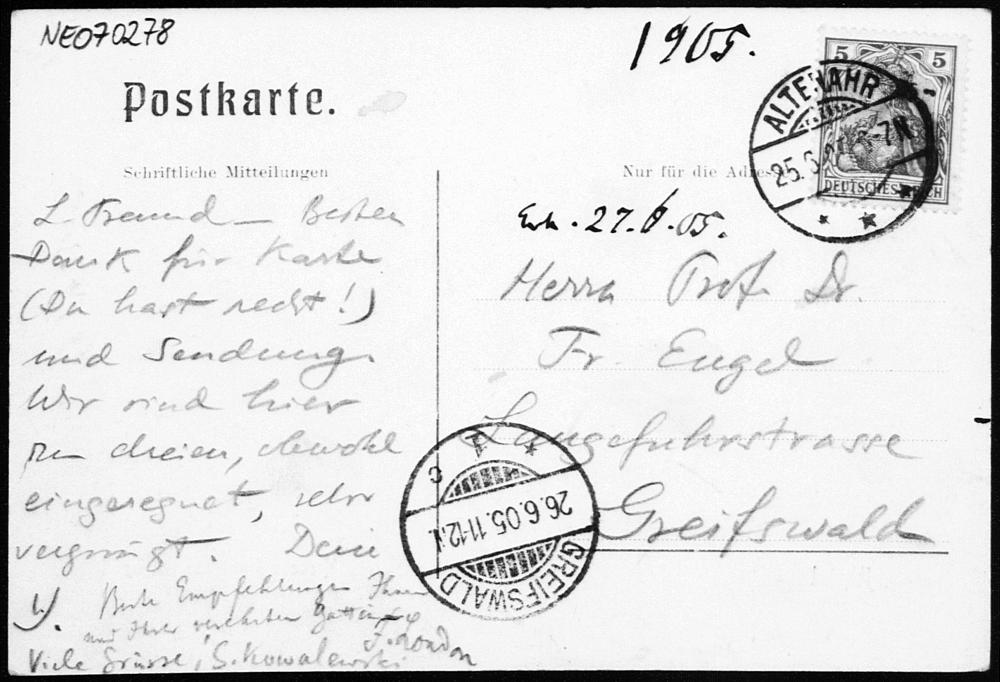 NE070278
1905.
5 5
DEUTSCHES REICH
ALTENAHR
25.6
6-7N
Postkarte.
Schriftliche Mitteilungen
Nur für die Adresse
L. Freund – Besten
Dank für Karte
(Du hast recht!)
und Sendung.
Wir sind hier
zu dreien, obwohl
eingeregnet, sehr
vergnügt. Dein
Beste Empfehlungen Ihnen
und Ihrer verehrten Gattin
F. London
Viele Grüsse, S. Kowalewski
Erh. 27.6.05.
Herrn Prof. Dr.
Fr. Engel
Langefuhrstrasse
Greifswald
GREIFSWALD
26.6.05.11-12.V.
1
c